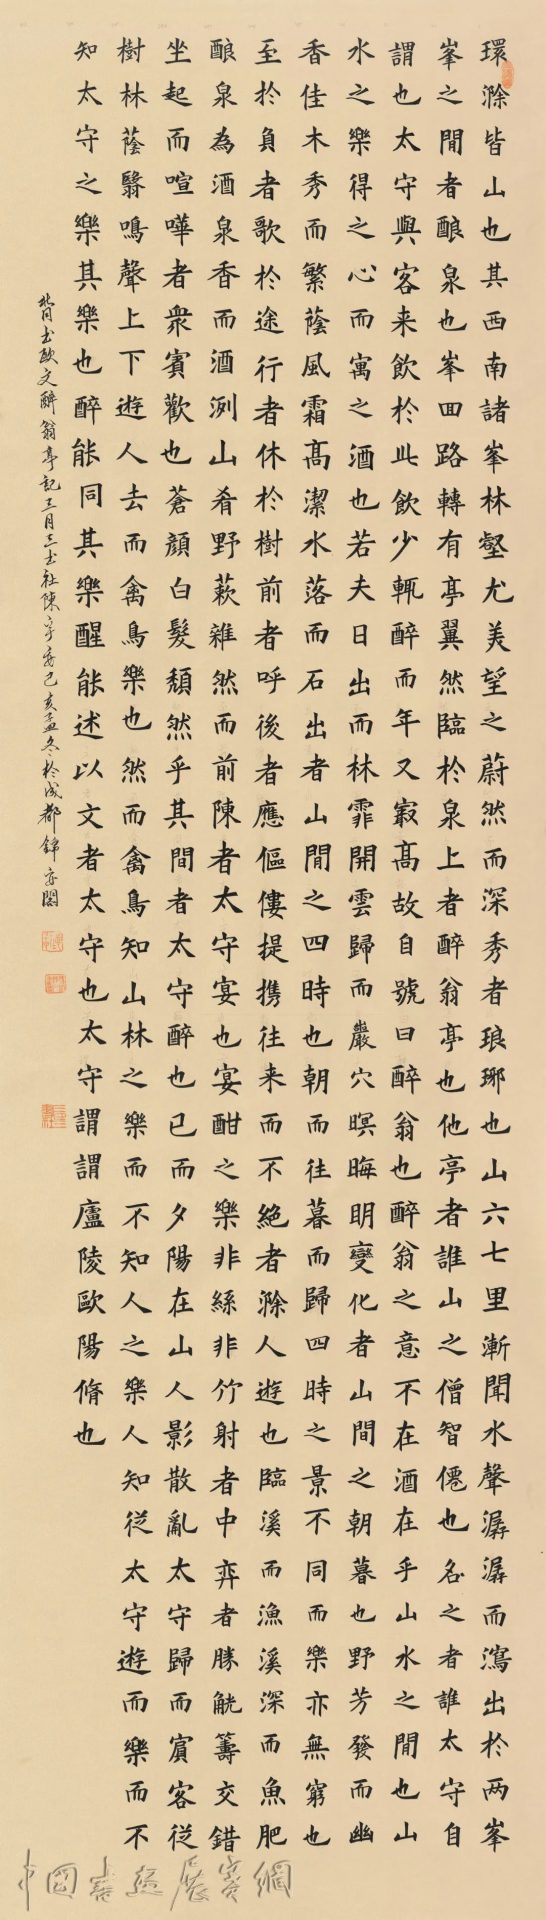 環滁皆山也其西南諸峯林壑尤美望之蔚然而深秀者琅琊也山六七里漸聞水聲潺潺而瀉出於两峯
峯之間者酿泉也峯回路轉有亭翼然臨於泉上者醉翁亭也他亭者誰山之僧智僊也名之者誰太守自
謂也太守與客来飲於此飲少輒醉而年又最高故自號曰醉翁也醉翁之意不在酒在乎山水之間也山
水之樂得之心而寓之酒也若夫日出而林霏開雲歸而巖穴暝晦明變化者山間之朝暮也野芳發而幽
香佳木秀而繁蔭風霜高潔水落而石出者山間之四時也朝而往暮而歸四時之景不同而樂亦無窮也
至於負者歌於途行者休於樹前者呼後者應傴僂提携往来而不絶者滁人遊也臨溪而漁溪深而魚肥
酿泉為酒泉香而酒洌山肴野蔌雜然而前陳者太守宴也宴酣之樂非絲非竹射者中弈者勝觥籌交錯
坐起而喧嘩者衆賓歡也蒼顔白髮頹然乎其間者太守醉也已而夕陽在山人影散亂太守歸而賓客從
樹林蔭翳鳴聲上下遊人去而禽鳥樂也然而禽鳥知山林之樂而不知人之樂人知從太守遊而樂而不
知太守之樂其樂也醉能同其樂醒能述以文者太守也太守謂謂廬陵歐陽脩也
背书欧文醉翁亭記三月三书社陳己亥孟冬於成都錦亦閣
中國書畫展賽網